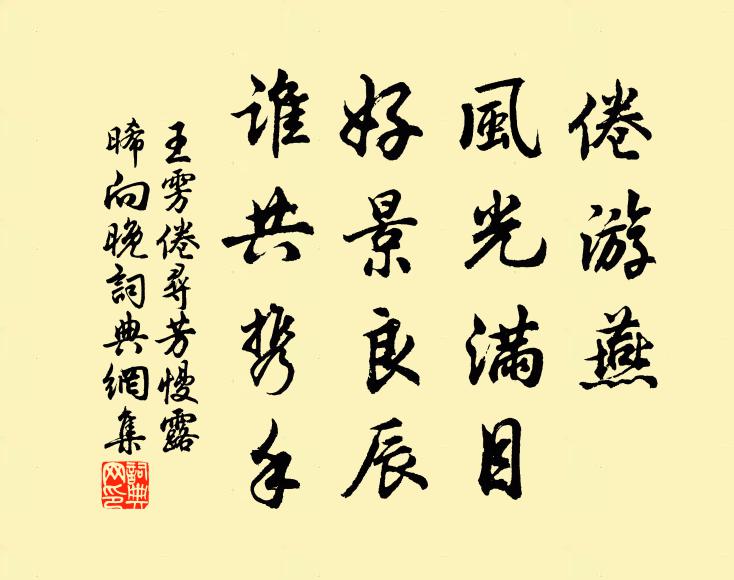 倦游燕
風光滿目
好景良辰
誰共携手
王雱倦尋芳慢露
晞向晚詞典網集
詞典网印